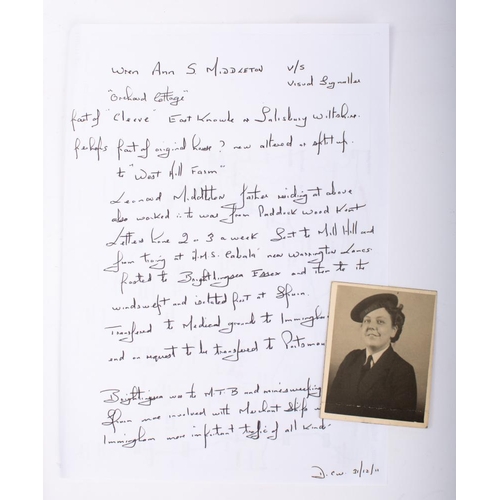 Wren Ann S. MIDDLETON V/S
Visual Signaller
"Orchard Cottage"
part of "Cleeve" East Knowle nr Salisbury Wiltshire.
Perhaps part of original house? now altered or split up.
to "West Hill Farm"
Leonard Middleton father residing at above
also worked it was from Paddock Wood Kent
Letters home 2 or 3 a week Sent to Mill Hill and
from training at H.M.S. Cabala near Warrington Lancs
Posted to Brightlingsea Essex and then to the
windswept and isolated port at Spurn.
Transferred to Medical grounds to Immingham
and on request to be transferred to Portsmou
Brightlingsea was to M.T.B and minesweeping
Spurn more involved with Merchant Ships
Immingham more important traffic of all kinds
D.C.W. 31/12/11